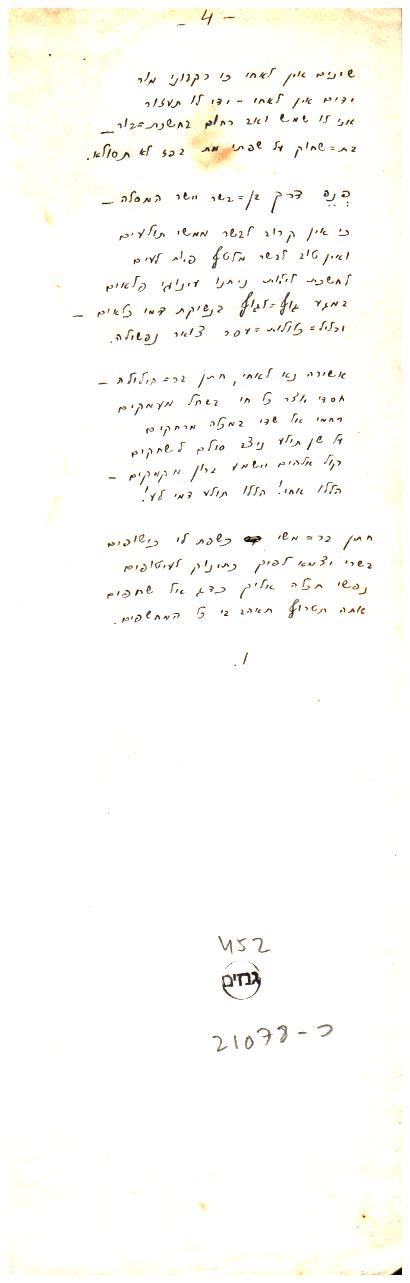 - 4 -
שינים אין לאחי כי רקבוני מור
ידים אין לאחי - ידי לו תעזור
אני לו שמש ואב רחום בחשכת=בור_
בת=שחוק על שפתי מת בפז לא תסולא.
דרך בן=בשר יושר המסלה _
כי אין קרוב לבשר ממשי תולעים
ואין טוב לבשר מלטף פיות לעים
לחשכת לילות ניתנו עינוגי פלאים
במגע גוף=לגוף בנשיקת דמי כלאים _
וכליל=כלולות=עפר צואר נפשולה.
אשירה נא לאחי, חתן בר=הילולה -
חסדי יוצר כל חי בשחל מעמקים
רחמי אל שדי במלה מרחקים
על שן תולע ניצב סולם לשחקים
קול אלהים יישמע ברון מקמקים -
הללו אחי! הללו תולע דמי לע!
חתן בר=משי כשפת לי כישופים
בשרי יצמא לפיך כתינוק לעיטופים
נפשי תכלה אליך כדג אל שחפים
אתה תטרוף תאהב בי כל המחשפים.
ו.
452
גנזים
כ-21078